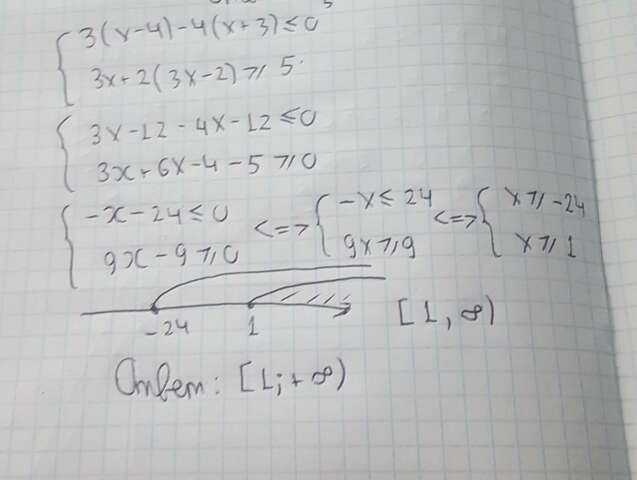 3(x-4)-4(x+3)≤0
3x+2(3x-2)≥5
3x-12-4x-12≤0
3x+6x-4-5≥0
-x-24≤0 <=> -x≤24 <=> x≥-24
9x-9≥0 9x≥9 x≥1
-24 1 [1,∞)
Ответ: [1;+∞)